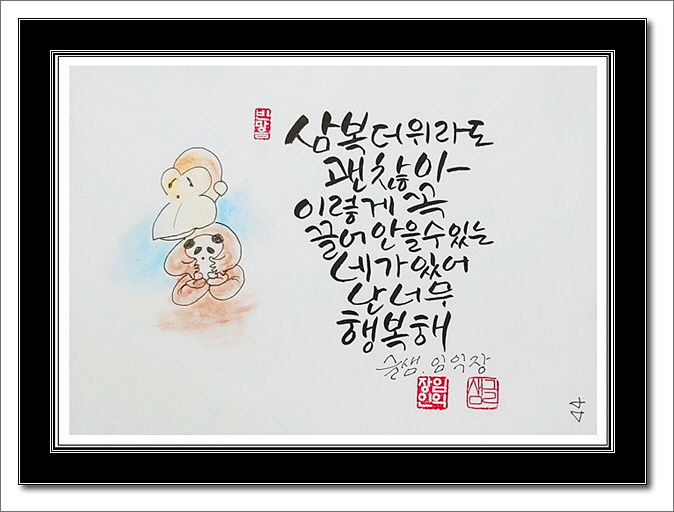 삼복더위라도
괜찮아~
이렇게 꼭
끌어 안을 수 있는
네가 있어
난 너무
행복해
임익장